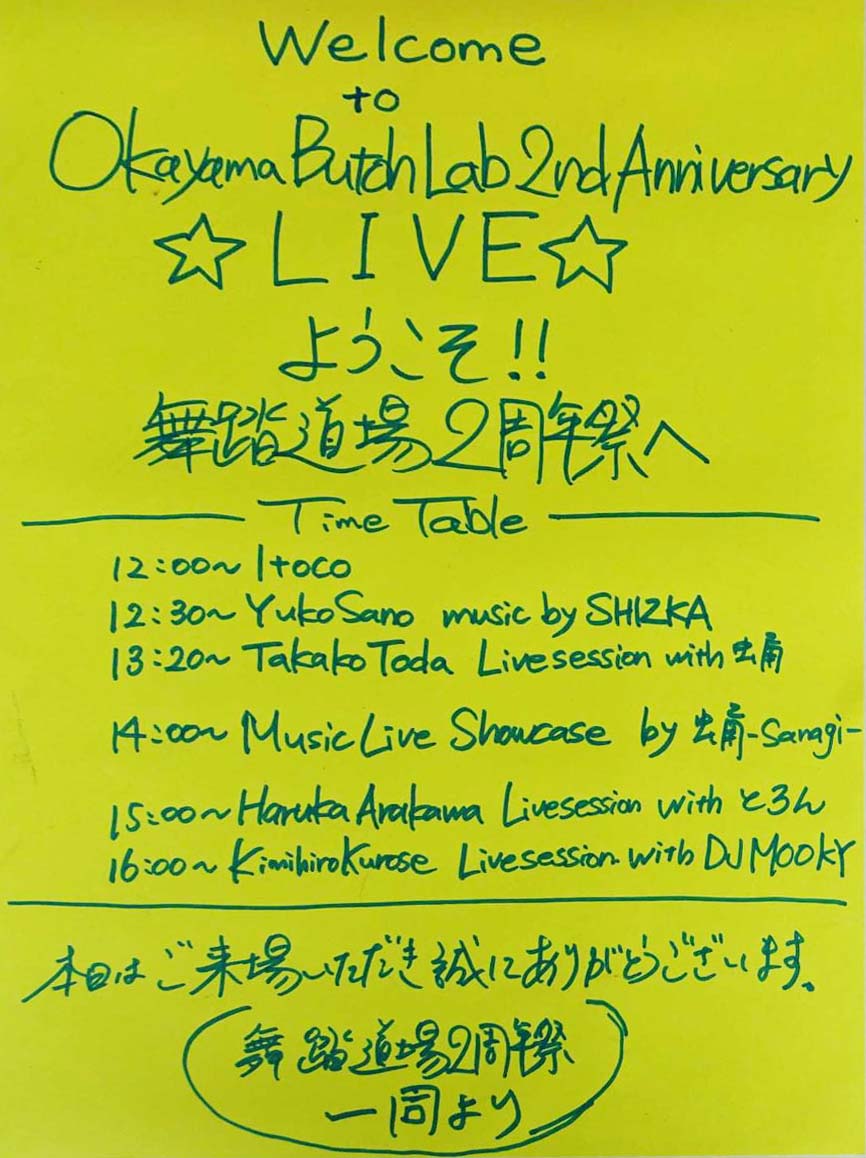 Welcome
to
Okayama Butoh Lab 2nd Anniversary
☆LIVE☆
ようこそ!!
舞踏道場2周年祭へ
Time Table
12:00~ Itoco
12:30~ Yuko Sano music by SHIZKA
13:20~ Takako Toda Livesession with 蛹
14:00~ Music Live Showcase by 蛹-Sanagi-
15:00~ Haruka Arakawa Livesession with とろん
16:00~ Kimihiro Kurose Livesession with DJ MOOKY
本日はご来場いただき誠にありがとうございます。
舞踏道場2周年祭
一同より